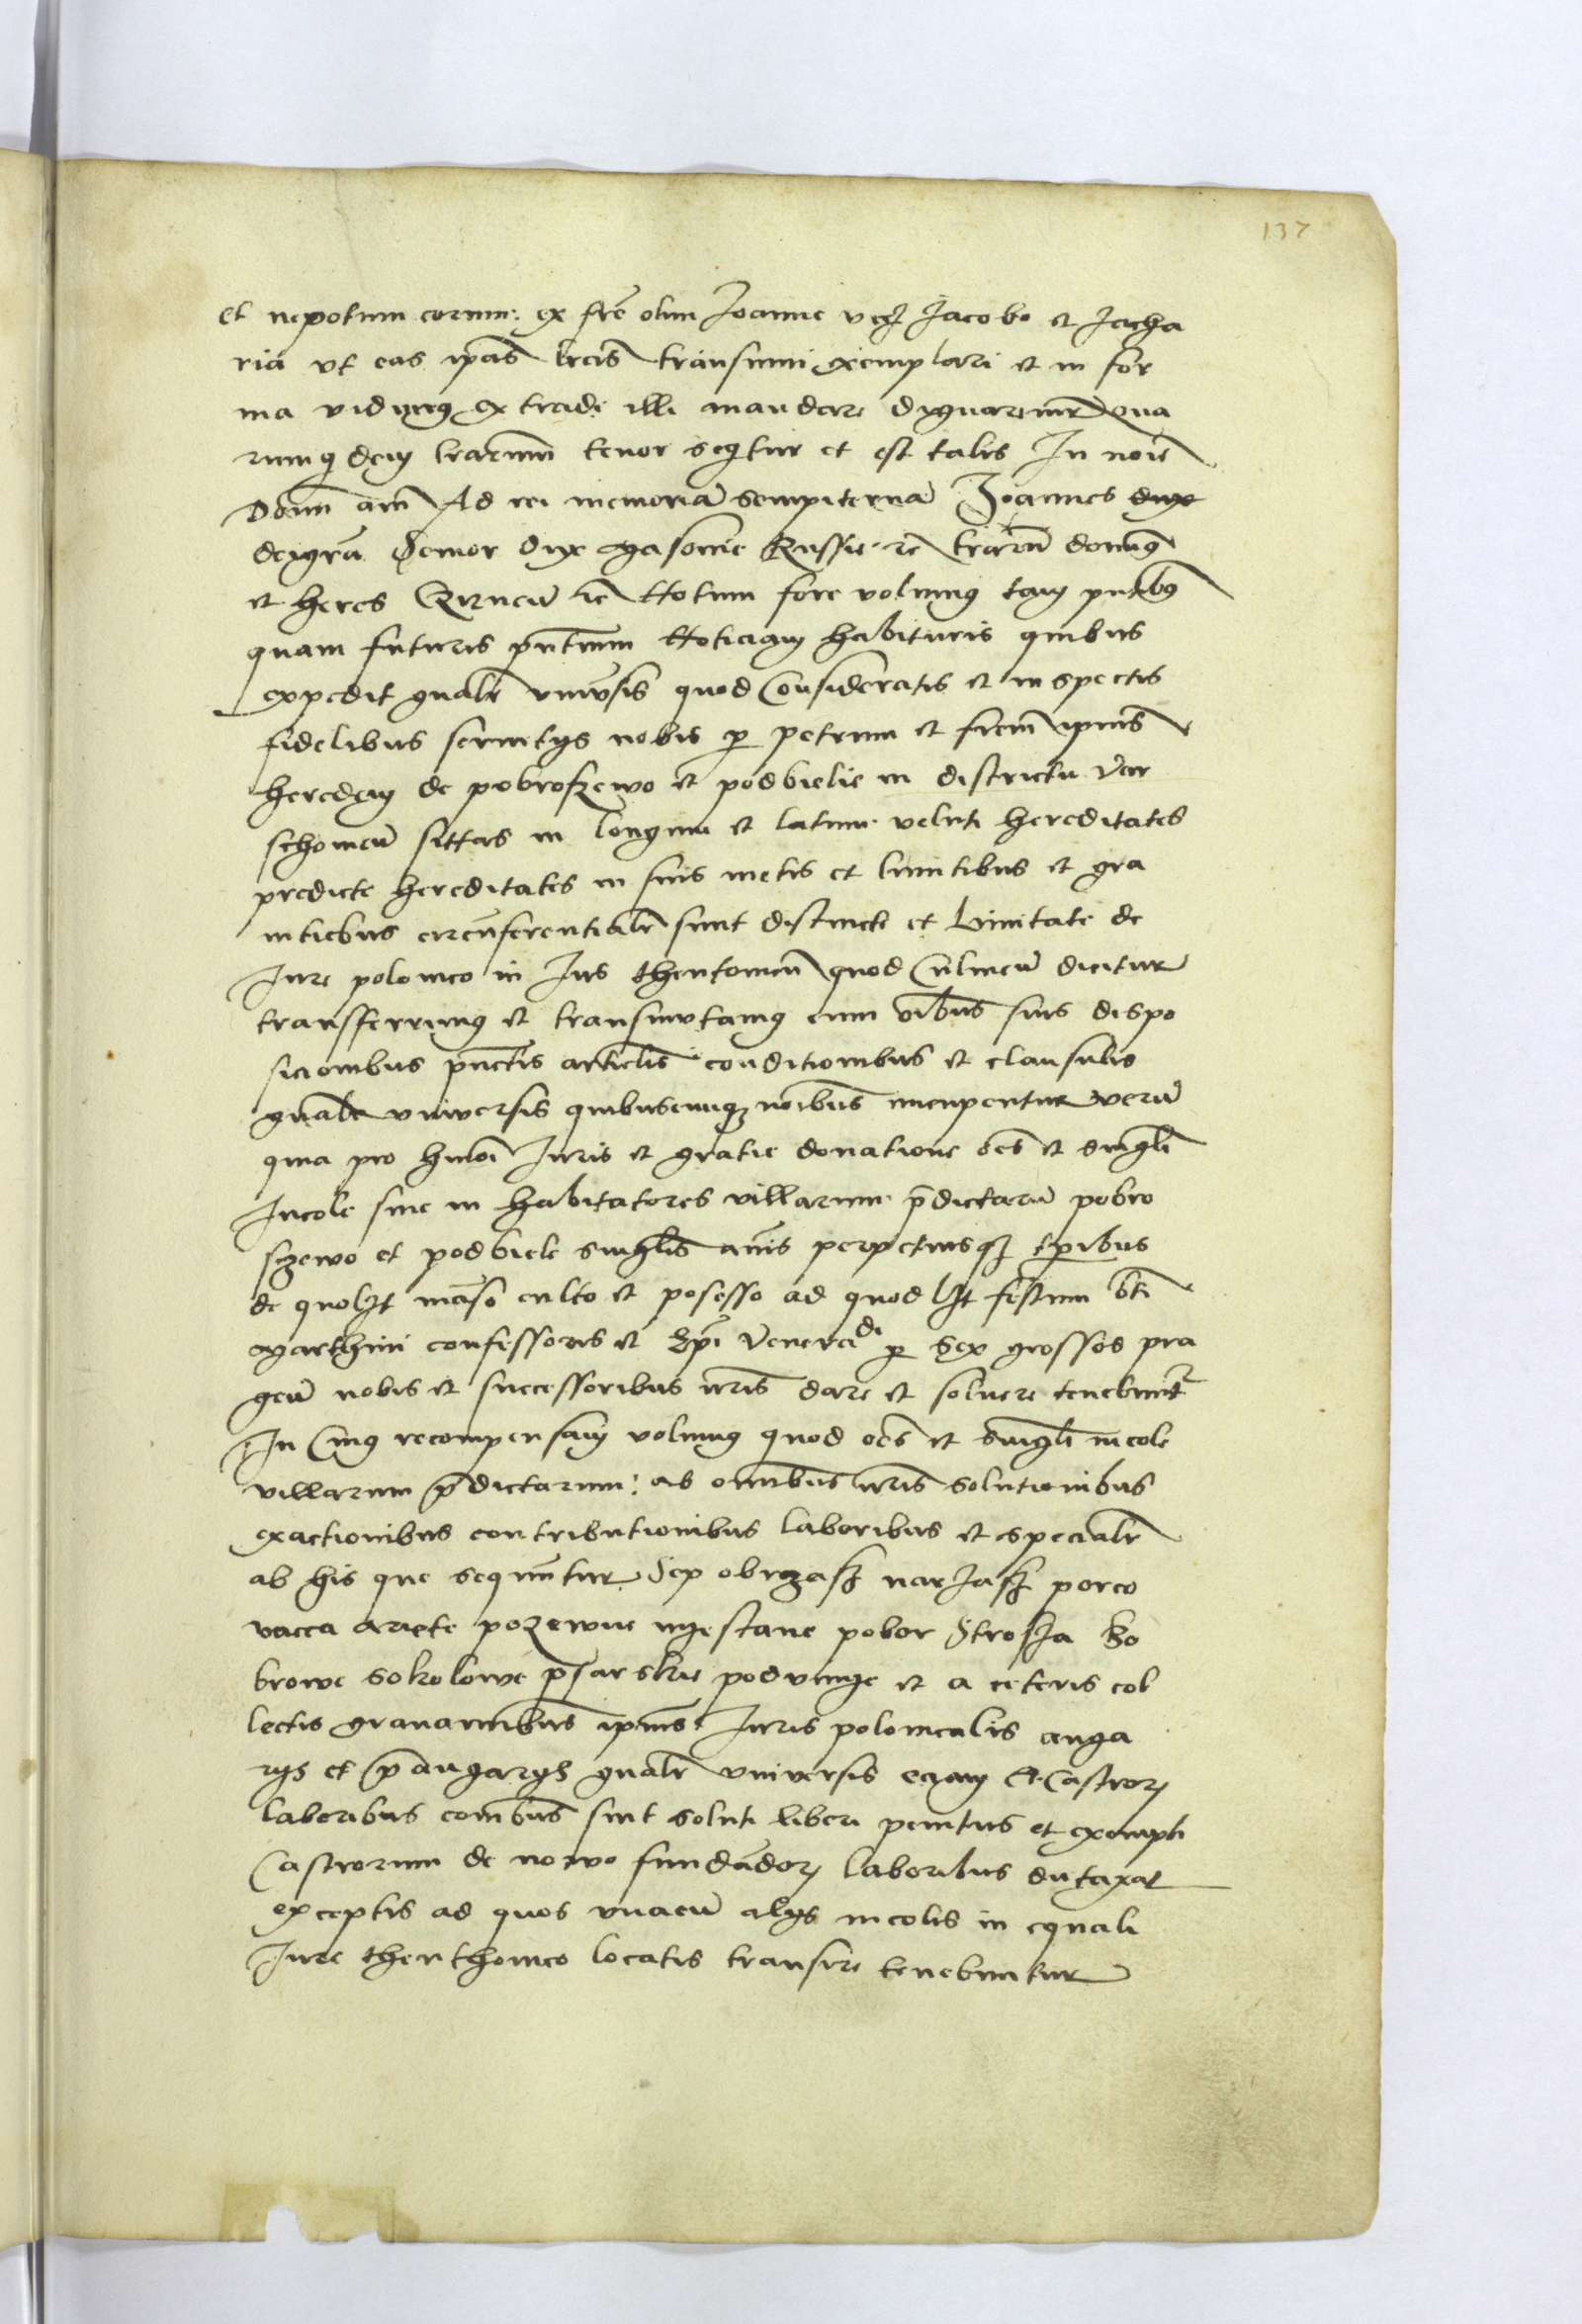 137
et nepotum eorum: ex frē olim Joanne vcz Jacobo et Zacha
ria vt eas ip̄as lrās transumi exemplari et in for
ma vidimus extradi illi mandare dignaremr̄ Qua
rumq̨dem lrarum tenor seq̨tur et est talis In noīe
Domī amē Ad rei memoriā sempiternā Joannes dux
dei grā̄ Senior dux Masouie Russie zc̄ trarū domin9
et heres Czirnen̄ zc̄ Notum fore volumus tam pn̄tibus
quam futuris pn̄tium Noticiam habituris quibus
expedit gn̄alr̄ vniūsis quod Consideratis et inspectis
fidelibus seruitijs nobis p petrum et frēm ipius
heredem de pobroszewo et podbielie in districtu Var
schouien̄ sittas in longum et latum veluti hereditates
predicte hereditates in suis metis et limitibus et gra
nitiebus circūferentialr̄ sunt distincte et limitate de
Jure polonico in Jus theutonicū quod Culmen̄ dicitur
transferrimus et transmutamus cum oībus suis dispo
sicionibus pūctis articlis conditionibus et clausulis
gn̄alr̄ vniversis quibuscumqz noībus nucupentur verū
quia pro hmōi Juris et gratie donatione oēs et singli
Incole siue inhabitatores villarum p̄dictarū pobro
szewo et podbiele singlis annis perpetuisqz tp̄ibus
de quolz̄t māso culto et posesso ad quodlz̄t festum bti
Marthini confessoris et Ep̄i Venerādi p sex grossos pra
gen̄ nobis et successoribus nr̄is dare et soluere tenebunt̄
In Cuius recompensam volumus quod oēs et singli incole
villarum p̄dictarum: ab omnibus nr̄is solutionibus
exactionibus contributionibus laboribus et specialr̄
ab his que sequntur Sep obrzasz narzasz porco
vacca ariete pozewne myestane pobor Stroza bo
browe sokolowe psarskie podvmye et a ceteris col
lectis grauaminibus ipius Juris polonicalis anga
rijs et p̄angarijs gn̄alr̄ vniversis eciam A Castrorz
laboribus comībus sint soluti liberi penitus et exempti
Castrorum de nowo fundādorz laboribus dūtaxat
exceptis ad quos vnacū alijs incolis in equali
Jure thenthonico locatis transire tenebuntur